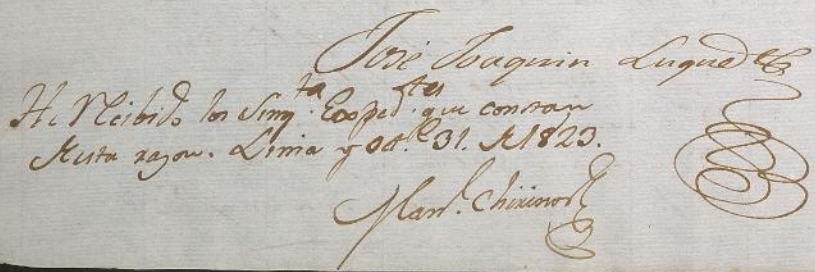 José Joaquin Luque
He Recibido los Sinq.ta Exped.tes que constan
de esta razon. Lima y Oct.e 31. de 1823.
Man.l Chirinos